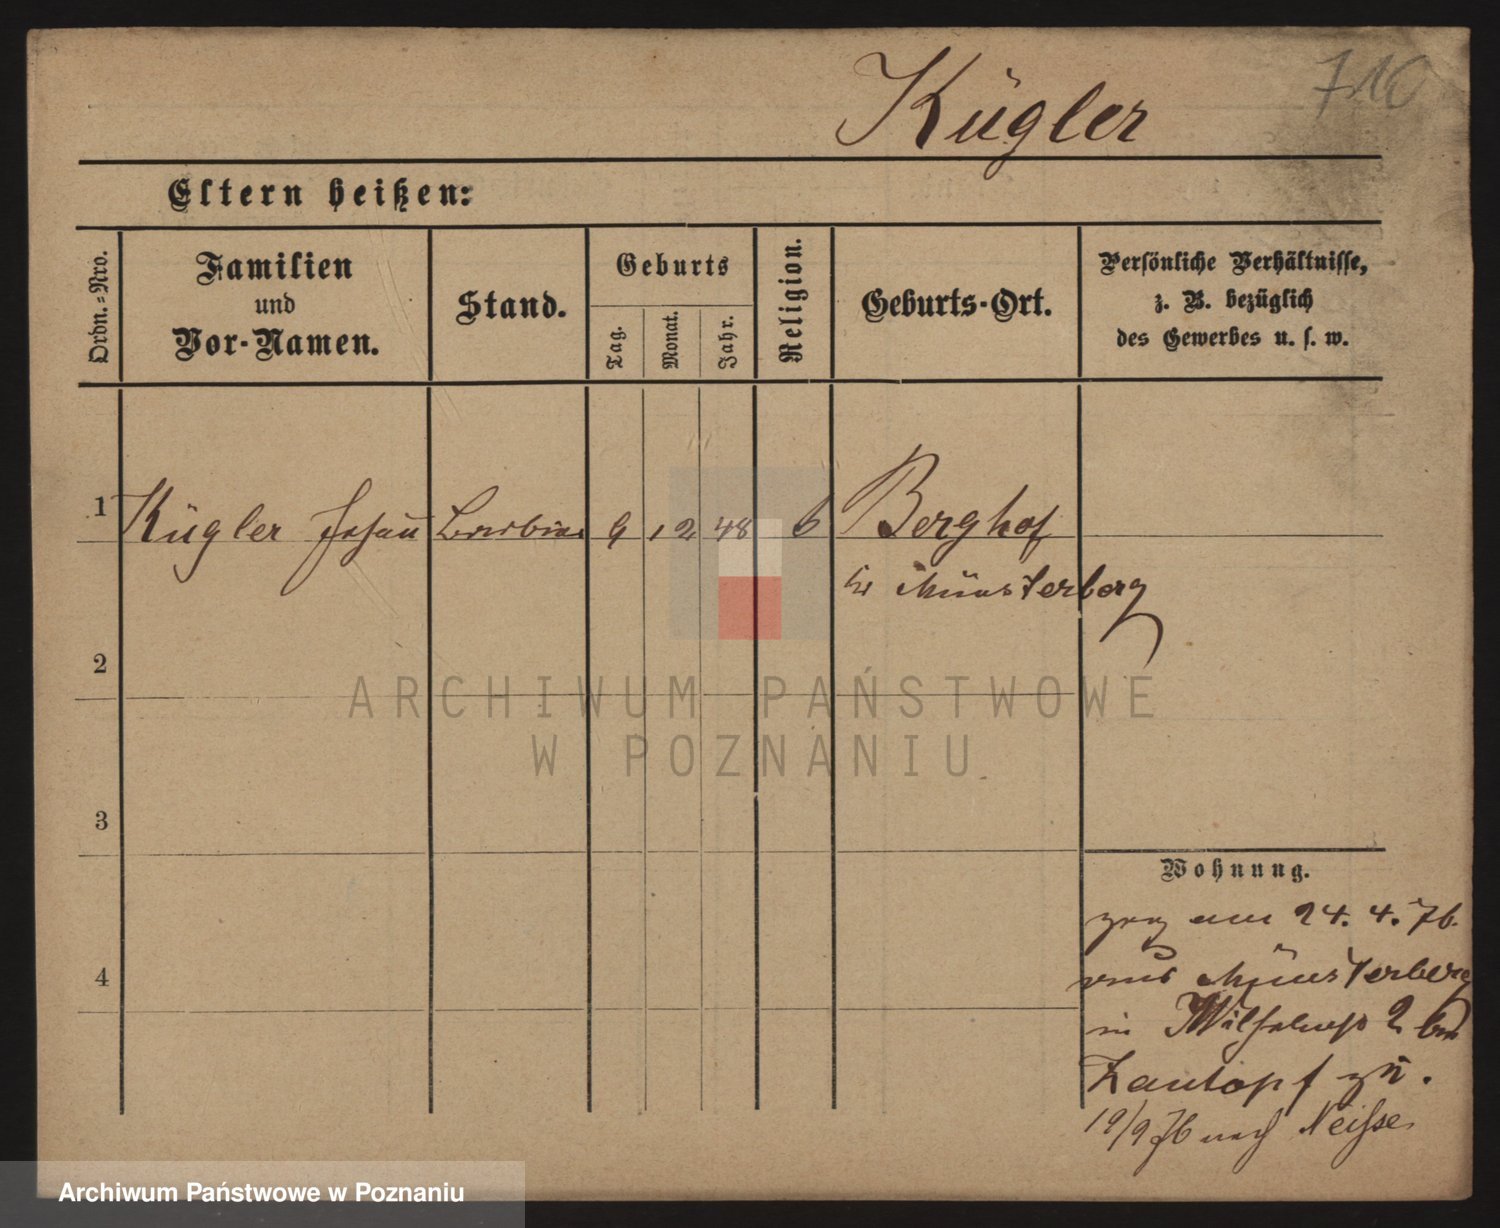 Kügler
710
Eltern heißen:
Ordn.=Nro.
Familien
und
Vor-Namen.
Stand.
Geburts
Tag.
Monat.
Jahr.
Religion.
Geburts-Ort.
Persönliche Verhältnisse,
z. B. bezüglich
des Gewerbes u. s. w.
1
Kügler Johann 9 12 48 Berghof
Münsterberg
2
ARCHIWUM PAŃSTWOWE
W POZNANIU
3
Wohnung.
zog am 24. 4. 76.
aus Münsterberg
4
in Wilhelmstr 2 bei
zu.
19/9 76 nach Neisse
Archiwum Państwowe w Poznaniu